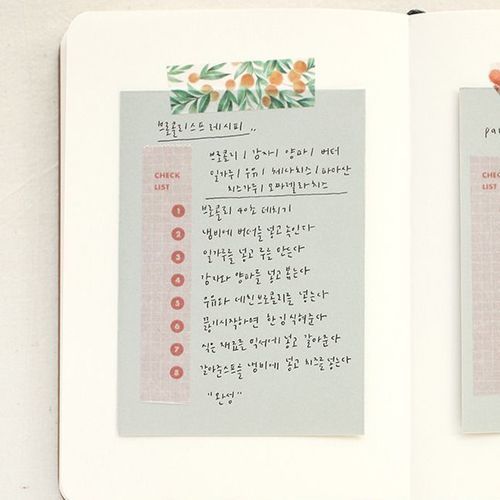 브로콜리스프 레시피..
브로콜리 / 감자 / 양파 / 버터
밀가루 / 우유 / 체다치즈 / 파마산
치즈가루 / 모짜렐라치즈
CHECK
LIST
1 브로콜리 40초 데치기
2 냄비에 버터를 넣고 녹인다
3 밀가루를 넣고 루를 만든다
4 감자와 양파를 넣고 볶는다
5 우유와 데친 브로콜리를 넣는다
6 끓기시작하면 한김 식혀준다
7 식은 재료를 믹서에 넣고 갈아준다
8 갈아준스프를 냄비에 넣고 치즈를 넣는다
"완성"
pa
CHEC
LIST